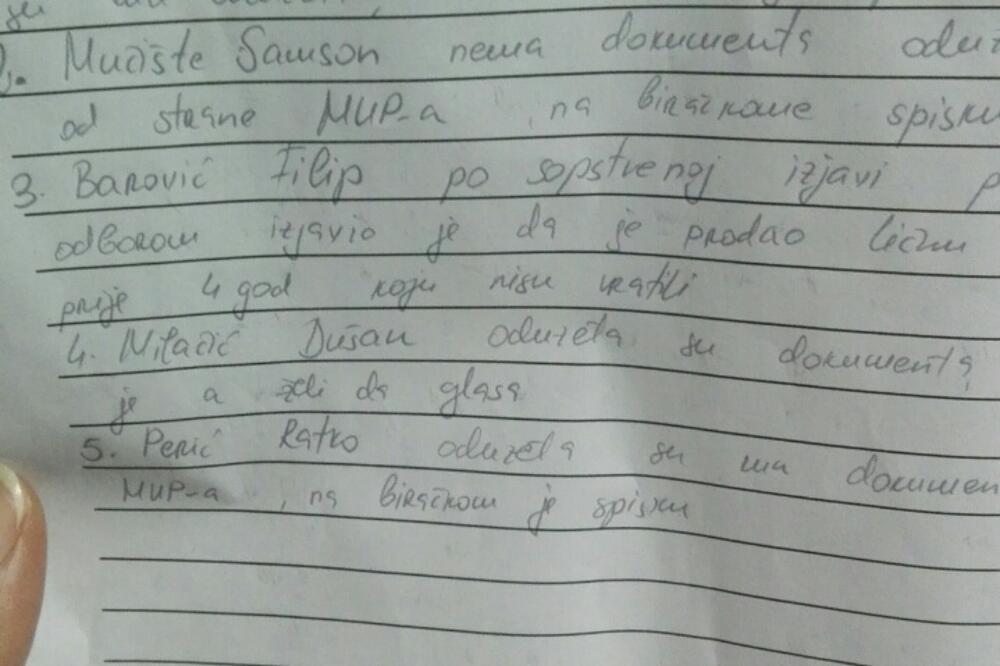 su
2. Mučište Samson nema dokumenta oduz
od strane MUP-a, na biračkome spisku
3. Banović Filip po sopstvenoj izjavi p
odborom izjavio je da je prodao ličnu
prije 4 god koju nisu vratili
4. Milačić Dušan oduzeta su dokumenta
je a želi da glasa
5. Perić Ratko oduzeta su mu dokumen
MUP-a, na biračkom je spisku